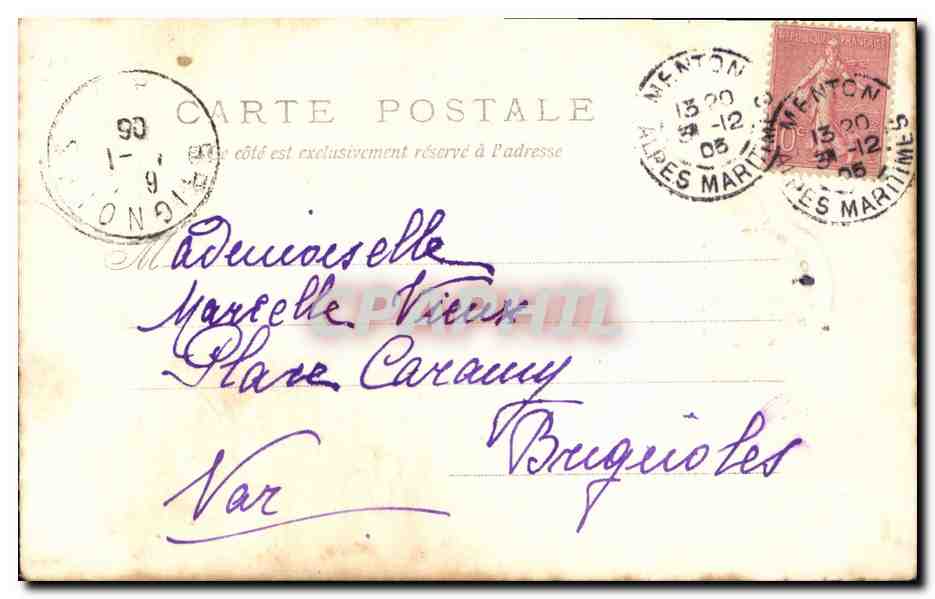 CARTE POSTALE
Ce côté est exclusivement réservé à l'adresse
Mademoiselle
Marcelle Vieux
Place Caramy
Brignoles
Var
RÉPUBLIQUE FRANÇAISE
10c
MENTON
13 20
31 -12
05
ALPES MARITIMES
MENTON
13 20
31 -12
05
ALPES MARITIMES
BRIGNOLES
1 -1
06
CPAPHIL